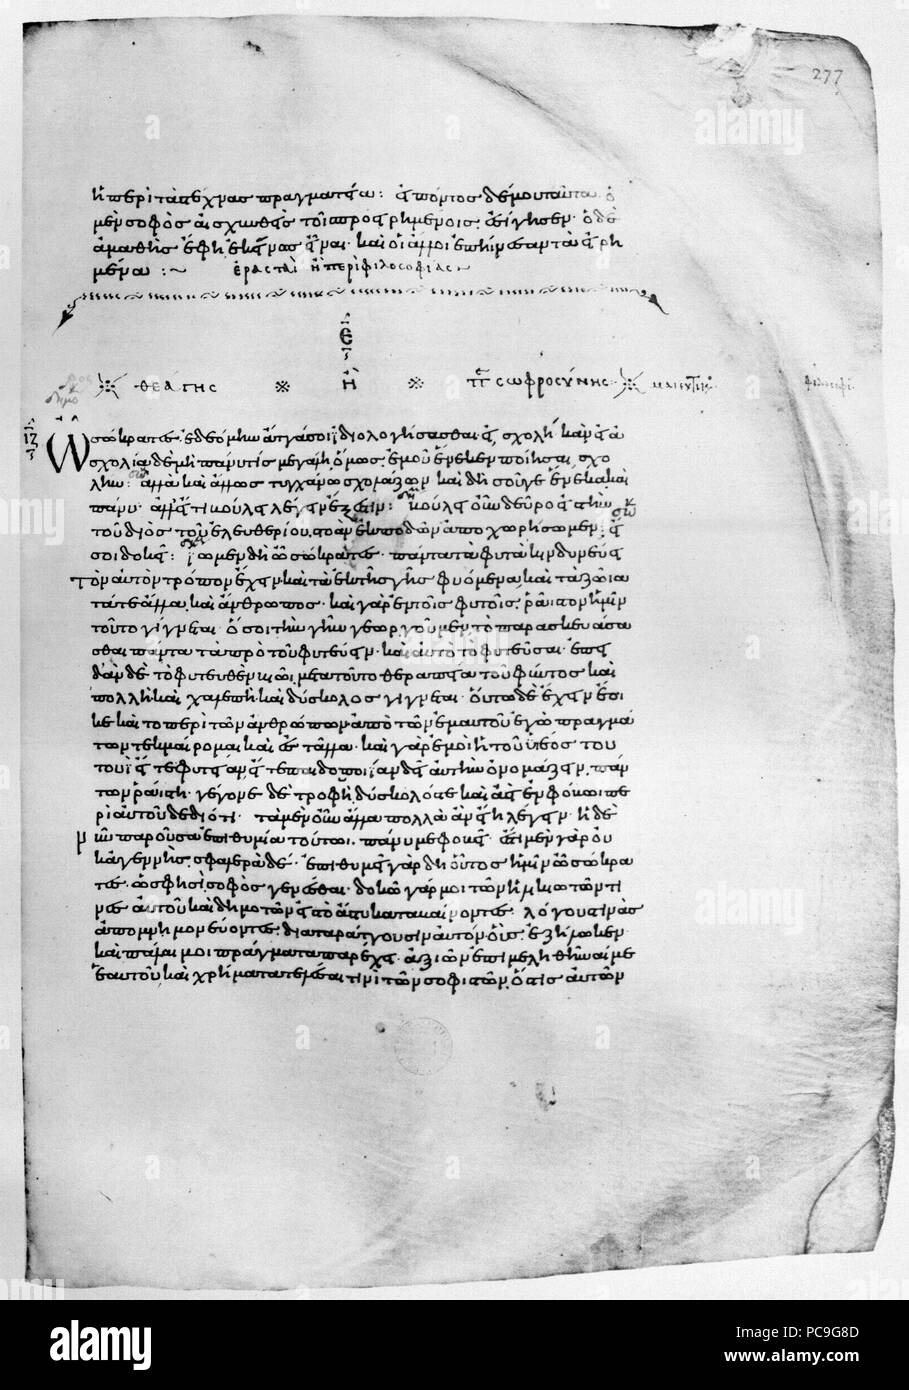 ἢ περὶ τὰς τέχνας πραγματείαν: εἰπόντος δέ μου ταῦτα ὁ
μὲν σοφὸς αἰσχυνθεὶς τοῖς προειρημένοις. ἐσίγησεν· ὁ δὲ
ἀμαθὴς ἔφη ἐκείνως εἶναι· καὶ οἱ ἄλλοι ἐπήινεσαν τὰ εἰρη
μένα :~ ἐρασταὶ ἢ περὶ φιλοσοφίας ~
Ε
※ ΘΕΑΓΗC ※ Ἢ ※ ΠΕΡῚ CΩΦΡΟCΥΝΗC· ※ ΜΑΙΕΥΤΙΚΟC
ΙΖ
Ὦ σώκρατες. ἐδεόμην ἄττα σοι ἰδιολογήσασθαι εἰ σχολή· κἂν εἰ ἀ
σχολία δὲ μὴ πάνυ τίς μεγάλη, ὅμως. ἐμοῦ ἕνεκεν ποίησαι σχο
λήν: ἀλλὰ καὶ ἄλλως τυγχάνω σχολάζων καὶ δὴ σοῦ γε ἕνεκα καὶ
πάνυ· ἀλλ' εἴ τι βούλει λέγειν ἔξεστιν: βούλει οὖν δεῦρο εἰς τὴν
τοῦ διὸς τοῦ ἐλευθερίου, στοὰν ἐκποδὼν ἀποχωρήσωμεν: εἴ
σοι δοκεῖ: ἴωμεν δὴ ὦ σώκρατες· πάντα τὰ φυτὰ κινδυνεύει
τὸν αὐτὸν τρόπον ἔχειν· καὶ τὰ ἐκ τῆς γῆς φυόμενα καὶ τὰ ζῶια
τά τε ἄλλα. καὶ ἄνθρωπος· καὶ γὰρ ἐν τοῖς φυτοῖς. ῥᾶιστον ἡμῖν
τοῦτο γίγνεται· ὅσοι τὴν γῆν γεωργοῦμεν τὸ παρασκευάσα
σθαι πάντα τὰ πρὸ τοῦ φυτεύειν· καὶ αὐτὸ τὸ φυτεῦσαι· ἐπει
δὰν δὲ τὸ φυτευθὲν βιῶι. μετὰ τοῦτο θεραπεία τοῦ φύντος καὶ
πολλὴ καὶ χαλεπὴ καὶ δύσκολος γίγνεται· οὕτω δὲ ἔχειν ἔοι
κε καὶ τὸ περὶ τῶν ἀνθρώπων· ἀπὸ τῶν ἐμαυτοῦ ἐγὼ πραγμά
των τεκμαίρομαι καὶ ἐς τἄλλα· καὶ γὰρ ἐμοὶ ἡ τοῦ ὑέος του
τουῒ εἴτε φυτείαν εἴτε παιδοποιΐαν δεῖ αὐτὴν ὀνομάζειν. πάν
των ῥάιστη. γέγονε δὲ τροφὴ, δύσκολός τε καὶ ἀεὶ ἐν φόβωι πε
ρὶ αὐτοῦ δεδιότι· τὰ μὲν οὖν ἄλλα πολλὰ ἂν εἴη λέγειν· ἡ δὲ
νῦν παροῦσα ἐπιθυμία τούτωι. πάνυ με φοβεῖ· ἔστι μὲν γὰρ οὐ
κ ἀγεννής. σφαλερὰ δέ· ἐπιθυμεῖ γὰρ δὴ οὗτος ἡμῖν ὦ σώκρα
τες· ὥς φησὶ. σοφὸς γενέσθαι· δοκῶ γάρ μοι τῶν ἡλικιωτῶν τι
νες αὐτοῦ καὶ δημοτῶν εἰς τὸ ἄστυ καταβαίνοντες· λόγους τινὰς
ἀπομνημονεύοντες. διαταράττουσιν αὐτόν· οὓς. ἐζήλωκεν·
καὶ πάλαι μοι πράγματα παρέχει· ἀξιῶν ἐπιμεληθῆναί με
ἑαυτοῦ καὶ χρήματα τελέσαι τινὶ τῶν σοφιστῶν, ὅστις αὐτὸν
277
alamy
PC9G8D
www.alamy.com